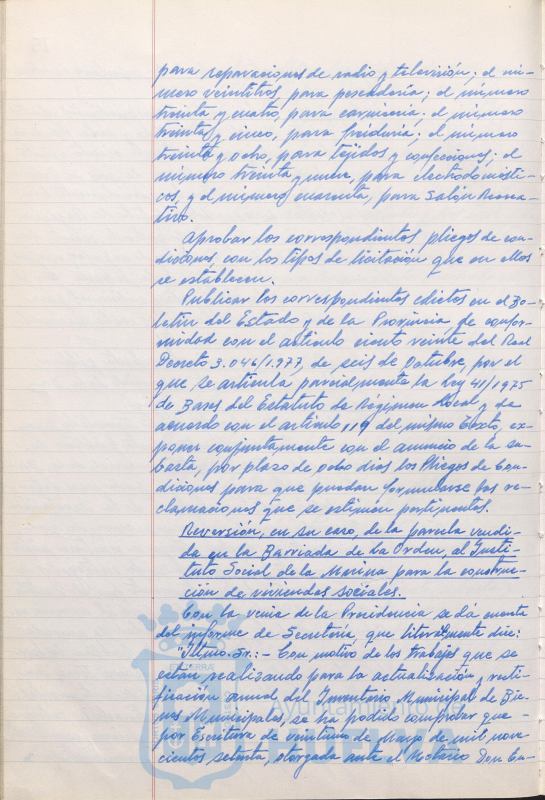 para reparaciones de radio y televisión; el nú-
mero veintitrés para pescadería; el número
treinta y cuatro, para carnicería; el número
treinta y cinco, para freiduría; el número
treinta y ocho, para tejidos y confecciones; el
número treinta y nueve, para electrodomésti-
cos, y el número cuarenta, para Salón Recrea-
tivo.
Aprobar los correspondientes pliegos de con-
diciones, con los tipos de licitación que en ellos
se establecen.
Publicar los correspondientes edictos en el Bo-
letín del Estado y de la Provincia de confor-
midad con el artículo ciento veinte del Real
Decreto 3.046/1.977, de seis de Octubre, por el
que se articula parcialmente la Ley 41/1975
de Bases del Estatuto de Régimen Local y de
acuerdo con el artículo 119 del mismo Texto, ex-
poner conjuntamente con el anuncio de la su-
basta, por plazo de ocho días los Pliegos de Con-
diciones para que puedan formularse las re-
clamaciones que se estimen pertinentes.
Reversión, en su caso, de la parcela vendi-
da en la Barriada de La Orden, al Insti-
tuto Social de la Marina para la construc-
ción de viviendas sociales.
Con la venia de la Presidencia se da cuenta
del informe de Secretaría, que literalmente dice:
"Iltmo. Sr.: - Con motivo de los trabajos que se
están realizando para la actualización y recti-
ficación anual del Inventario Municipal de Bie-
nes Municipales, se ha podido comprobar que -
por Escritura de veintiuno de Mayo de mil nove-
cientos setenta, otorgada ante el Notario Don
Ayuntamiento de
HUELVA